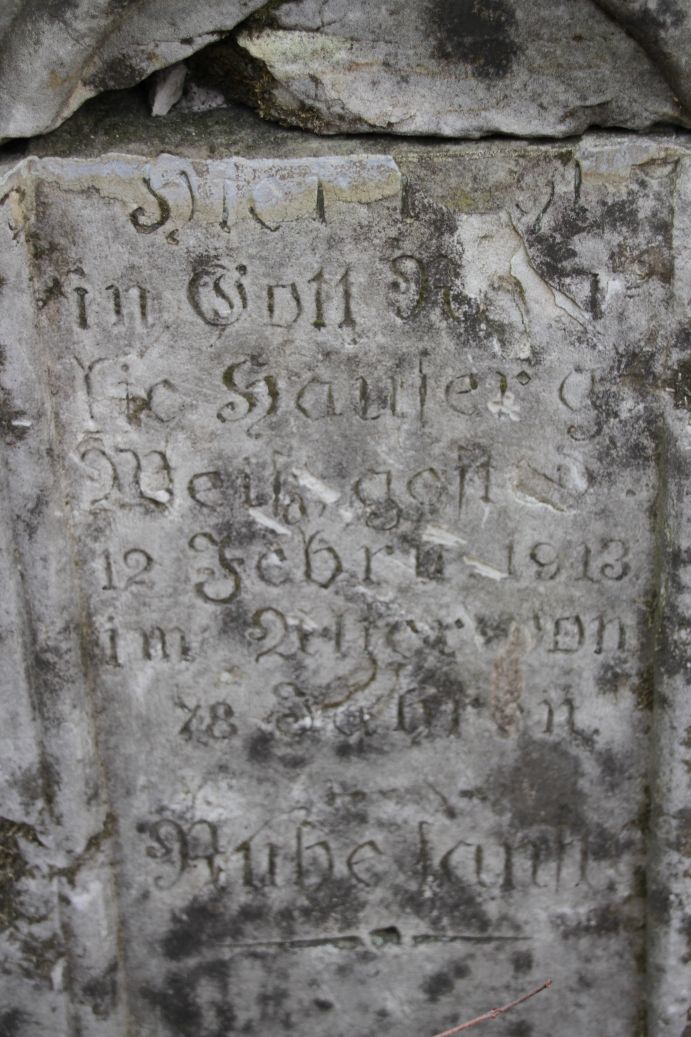 Hier ruht
in Gott
Hauser g
Weiß, gest.
12 Febru 1913
im Alter von
78 Jahren
Ruhe sanft